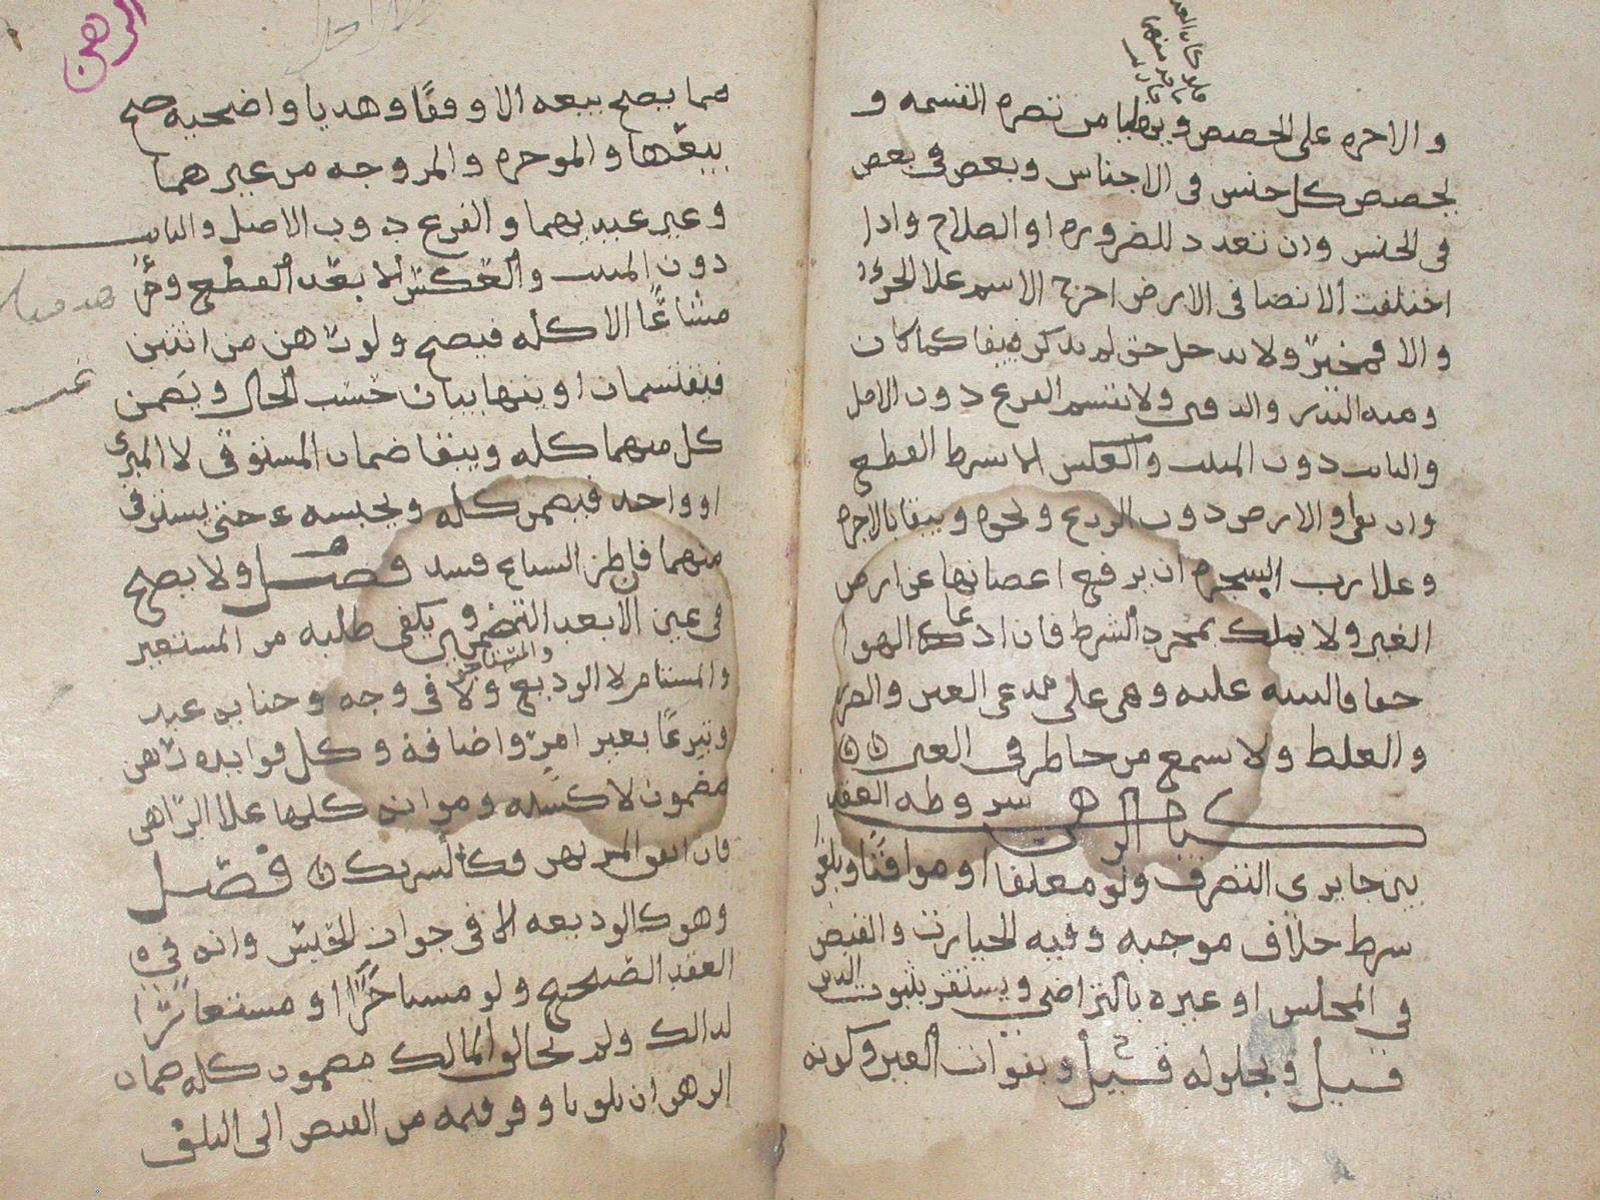 والاجره على الحصص ويوطيا من تضره القسمه و
لحصص كل جنس فى الاجناس وبعض فى بعض
فى الجنس وان تعدد للضروره او الصلاح واذا
اختلفت الانصبا فى الارض اخرج الاسم علا الجزء
والا فمخير ولا يدخل حق لم يذكر فيبقا كما كان
ومنه البذر والدفين ولا تقسم الفرع دون الاصل
والنابت دون المنبت والعكس الا بشرط القطع
وان بقى او الارض دون الزرع ونحوه ويبقا بالاجره
وعلا رب الشجره ان يرفع اغصانها عن ارض
الغير ولا يملك بمجرد الشرط فان ادعا الهوا
حقا فالبينه عليه وهى على مدعى الغبن والضرر
والغلط ولا يسمع من حاضر فى الغبن
كتاب الرهن شروطه العقد
بين جايزى التصرف ولو معلقا او موقتا ويلغو
شرط خلاف موجبه وفيه الخيارات والقبض
فى المجلس او غيره بالتراضى ويستقر بثبوت الدين
قيل وبحلوله قيل وبفوات العين وكونه
الرهن
مما يصح بيعه الا وقفا وهديا واضحيه صح
بيعها والموجره والمزوجه من غيرهما
وغير عبديهما والفرع دون الاصل والنابت
دون المنبت والعكس الا بعد القطع وجزءا
مشاعا الا كله فيصح ولو رهن من اثنين
فيقتسمان او يتهايبان حسب الحال ويضمن
كل منهما كله ويبقا ضمان المستوفى لا المبرى
او واحد فيضمن كله ويحبسه حتى يستوفى
منهما فان طرا الشياع فسد فصل ولا يصح
فى عين الا بعد التضمين ويكفى طلبه من المستعير
والمستام لا الوديع ولا فى وجه وجنايه عبد
وتبرعا بغير امر واضافة وكل فوايده رهن
مضمون لا كسبه ومونه كلها علا الراهن
فان انفق المرتهن فكالشريك فصل
وهو كالوديعه الا فى جواز الحبس وانه فى
العقد الصحيح ولو مستاجرا او مستعارا
لذالك ولم يخالف المالك مضمون كله ضمان
الرهن ان تلف باوفر قيمه من القبض الى التلف